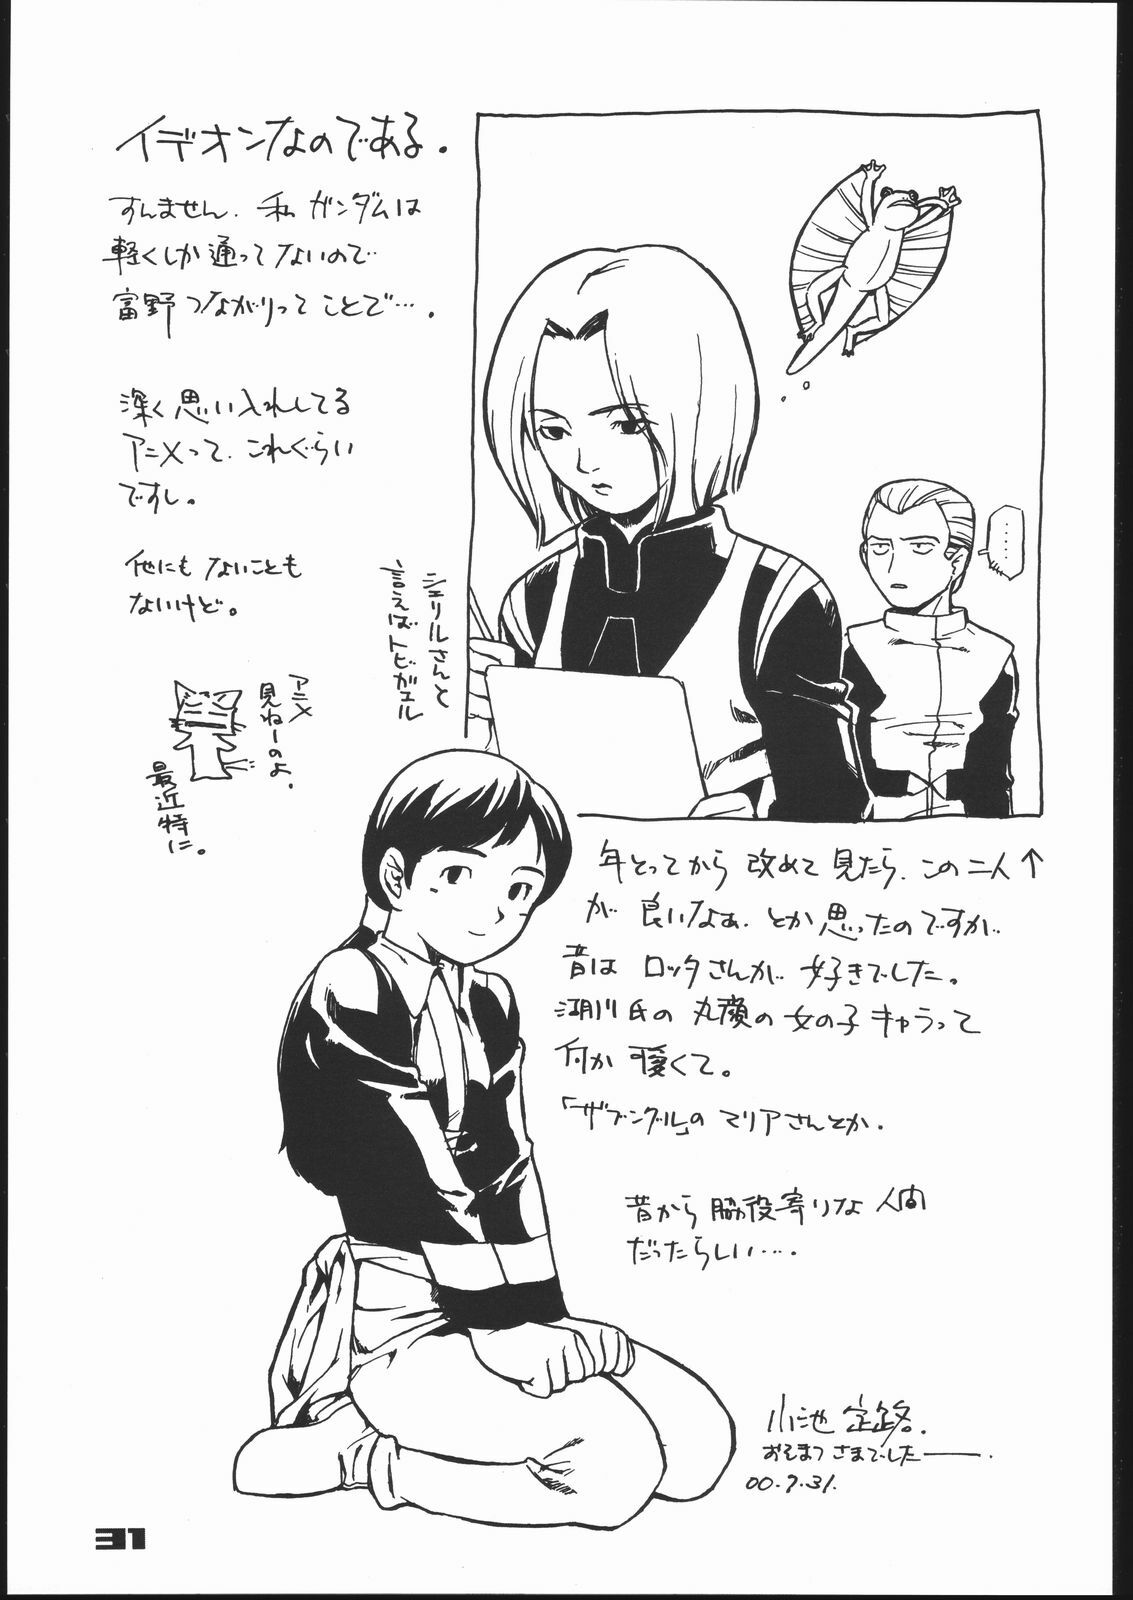 イデオンなのである。
すんません、私 ガンダムは
軽くしか通ってないので
富野つながりってことで…。
深く思い入れしてる
アニメって、これぐらい
ですし。
他にもないことも
ないけど。
シェリルさんと
言えばトビガエル
……
アニメ
見ねーのよ、
最近特に。
年とってから 改めて 見たら、この二人↑
が 良いなぁ、とか思ったのですが
昔は ロッタさんが 好きでした。
湖川氏の 丸顔の女の子キャラって
何か 可愛くて。
「ザブングル」の マリアさんとか。
昔から脇役寄りな人間
だったらしい…。
小池定路。
おそまつさまでした——。
00.7.31.
31